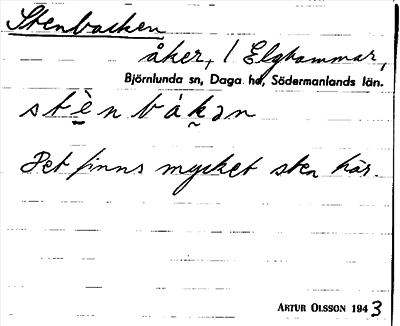 Stenbacken
åker, / Elghammar,
Björnlunda sn, Daga hd, Södermanlands län.
stè̱nbàk̬ən
Det finns mycket sten här.
ARTUR OLSSON 1943